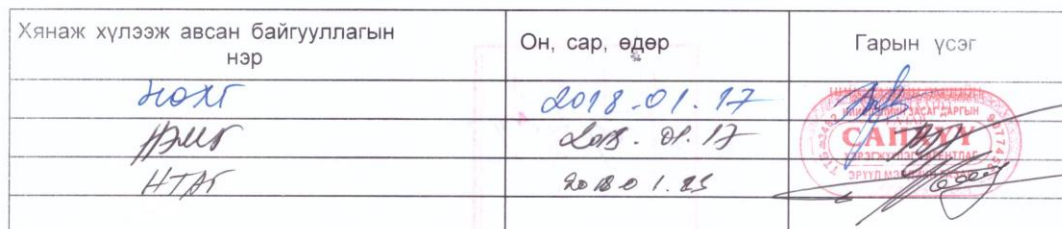 Хянаж хүлээж авсан байгууллагын
нэр
Он, сар, өдөр
Гарын үсэг
НӨХГ 2018.01.17
НЭМГ 2018.01.17
НТАГ 2018 01.25
ЗАСАГ ДАРГЫН
САНХҮҮ